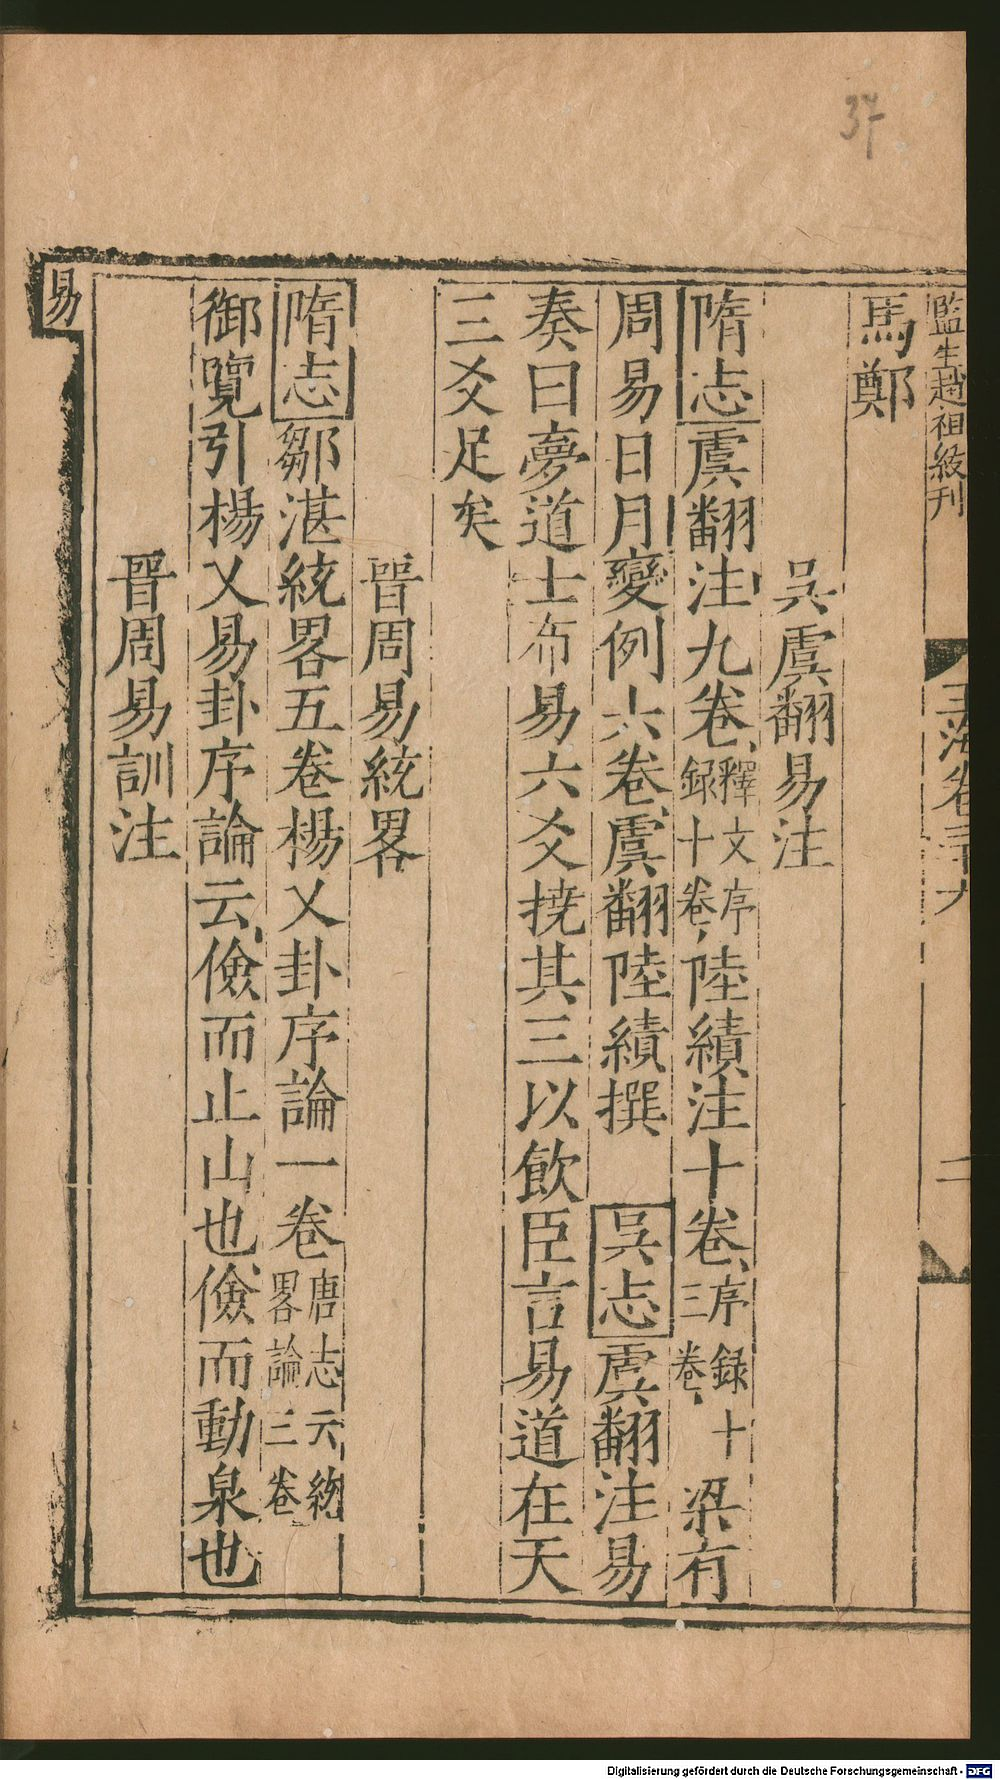 37
監生趙祖紋刊
玉海卷三十六
二
馬鄭
吳虞翻易注
隋志虞翻注九卷釋文序録十卷陸績注十卷序録十三卷梁有
周易日月變例六卷虞翻陸績撰 吳志虞翻注易
奏曰夢道士布易六爻撓其三以飲臣言易道在天
三爻足矣
晉周易統畧
隋志鄒湛統畧五卷楊乂卦序論一卷唐志云統畧論三卷
御覽引楊乂易卦序論云儉而止山也儉而動泉也
晉周易訓注
易
Digitalisierung gefördert durch die Deutsche Forschungsgemeinschaft - DFG